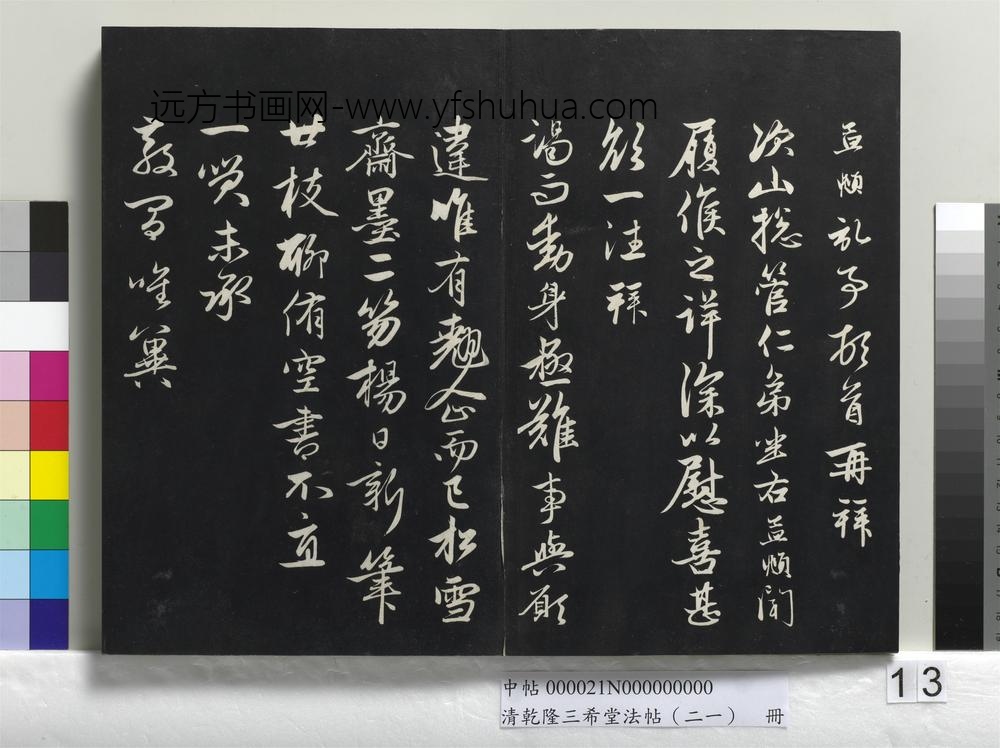 孟頫記事頓首再拜
次山總管仁弟坐右孟頫聞
履候之詳深以慰喜甚
欲一往拜
謁而動身極難事與願
違唯有翹企而已松雪
齋墨二笏楊日新筆
廿枝聊侑空書不直
一笑未承
教間唯冀
远方书画网-www.yfshuhua.com
中帖 000021N000000000
清乾隆三希堂法帖（二一） 冊
13